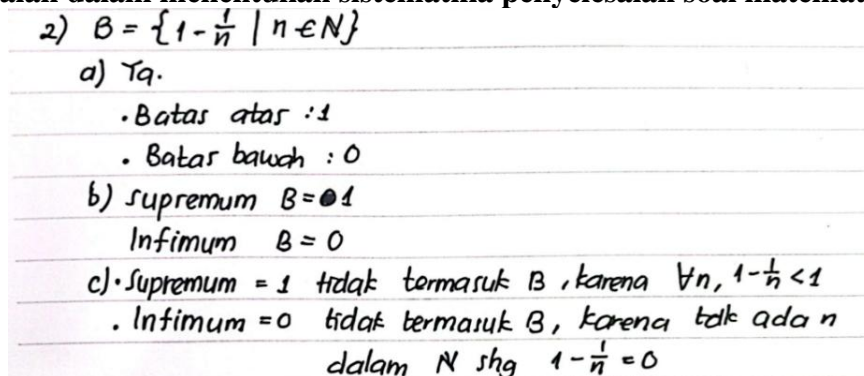 dalam menentukan sistematika penyelesaian soal matemat
2) B = {1 - 1/n | n ∈ N}
a) Ya.
• Batas atas : 1
• Batas bawah : 0
b) Supremum B = 1
Infimum B = 0
c) • Supremum = 1 tidak termasuk B, karena ∀n, 1 - 1/n < 1
• Infimum = 0 tidak termasuk B, karena tdk ada n
dalam N shg 1 - 1/n = 0